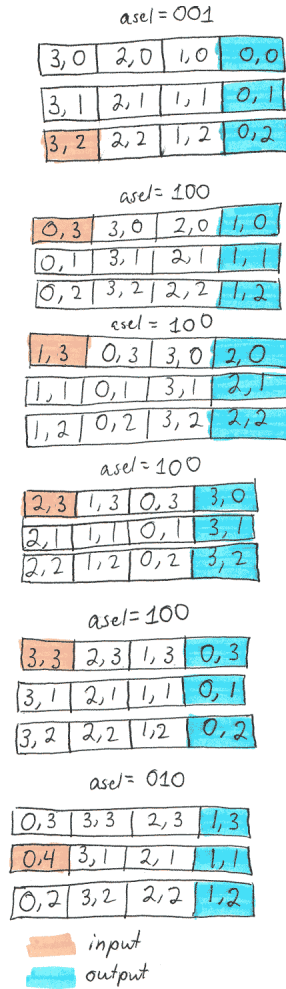 asel = 001
3,0 2,0 1,0 0,0
3,1 2,1 1,1 0,1
3,2 2,2 1,2 0,2
asel = 100
0,3 3,0 2,0 1,0
0,1 3,1 2,1 1,1
0,2 3,2 2,2 1,2
asel = 100
1,3 0,3 3,0 2,0
1,1 0,1 3,1 2,1
1,2 0,2 3,2 2,2
asel = 100
2,3 1,3 0,3 3,0
2,1 1,1 0,1 3,1
2,2 1,2 0,2 3,2
asel = 100
3,3 2,3 1,3 0,3
3,1 2,1 1,1 0,1
3,2 2,2 1,2 0,2
asel = 010
0,3 3,3 2,3 1,3
0,4 3,1 2,1 1,1
0,2 3,2 2,2 1,2
input
output